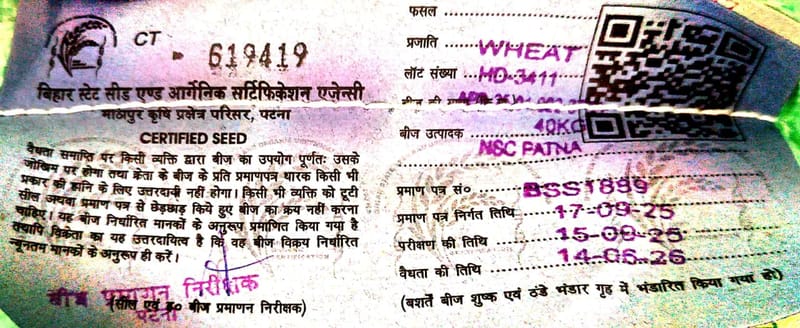 CT - 619419
बिहार स्टेट सीड एण्ड आर्गेनिक सर्टिफिकेशन एजेन्सी
मीठापुर कृषि प्रक्षेत्र परिसर, पटना
CERTIFIED SEED
वैधता समाप्ति पर किसी व्यक्ति द्वारा बीज का उपयोग पूर्णतः उसके
जोखिम पर होगा तथा क्रेता के बीज के प्रति प्रमाणपत्र धारक किसी भी
प्रकार की हानि के लिए उत्तरदायी नहीं होगा। किसी भी व्यक्ति को टूटी
सील अथवा प्रमाण पत्र से छेड़छाड़ किये हुए बीज का क्रय नहीं करना
चाहिए। यह बीज निर्धारित मानकों के अनुरूप प्रमाणित किया गया है
तथापि विक्रेता का यह उत्तरदायित्व है कि वह बीज विक्रय निर्धारित
न्यूनतम मानकों के अनुरूप ही करें।
बीज प्रमाणन निरीक्षक
(सील एवं ह० बीज प्रमाणन निरीक्षक)
पटना
फसल
प्रजाति WHEAT
लॉट संख्या HD-3411
बीज की
40KG
बीज उत्पादक NSC PATNA
प्रमाण पत्र सं० BSS1899
प्रमाण पत्र निर्गत तिथि 17-09-25
परीक्षण की तिथि 15-09-25
वैधता की तिथि 14-06-26
(बशर्ते बीज शुष्क एवं ठंडे भंडार गृह में भंडारित किया गया हो)